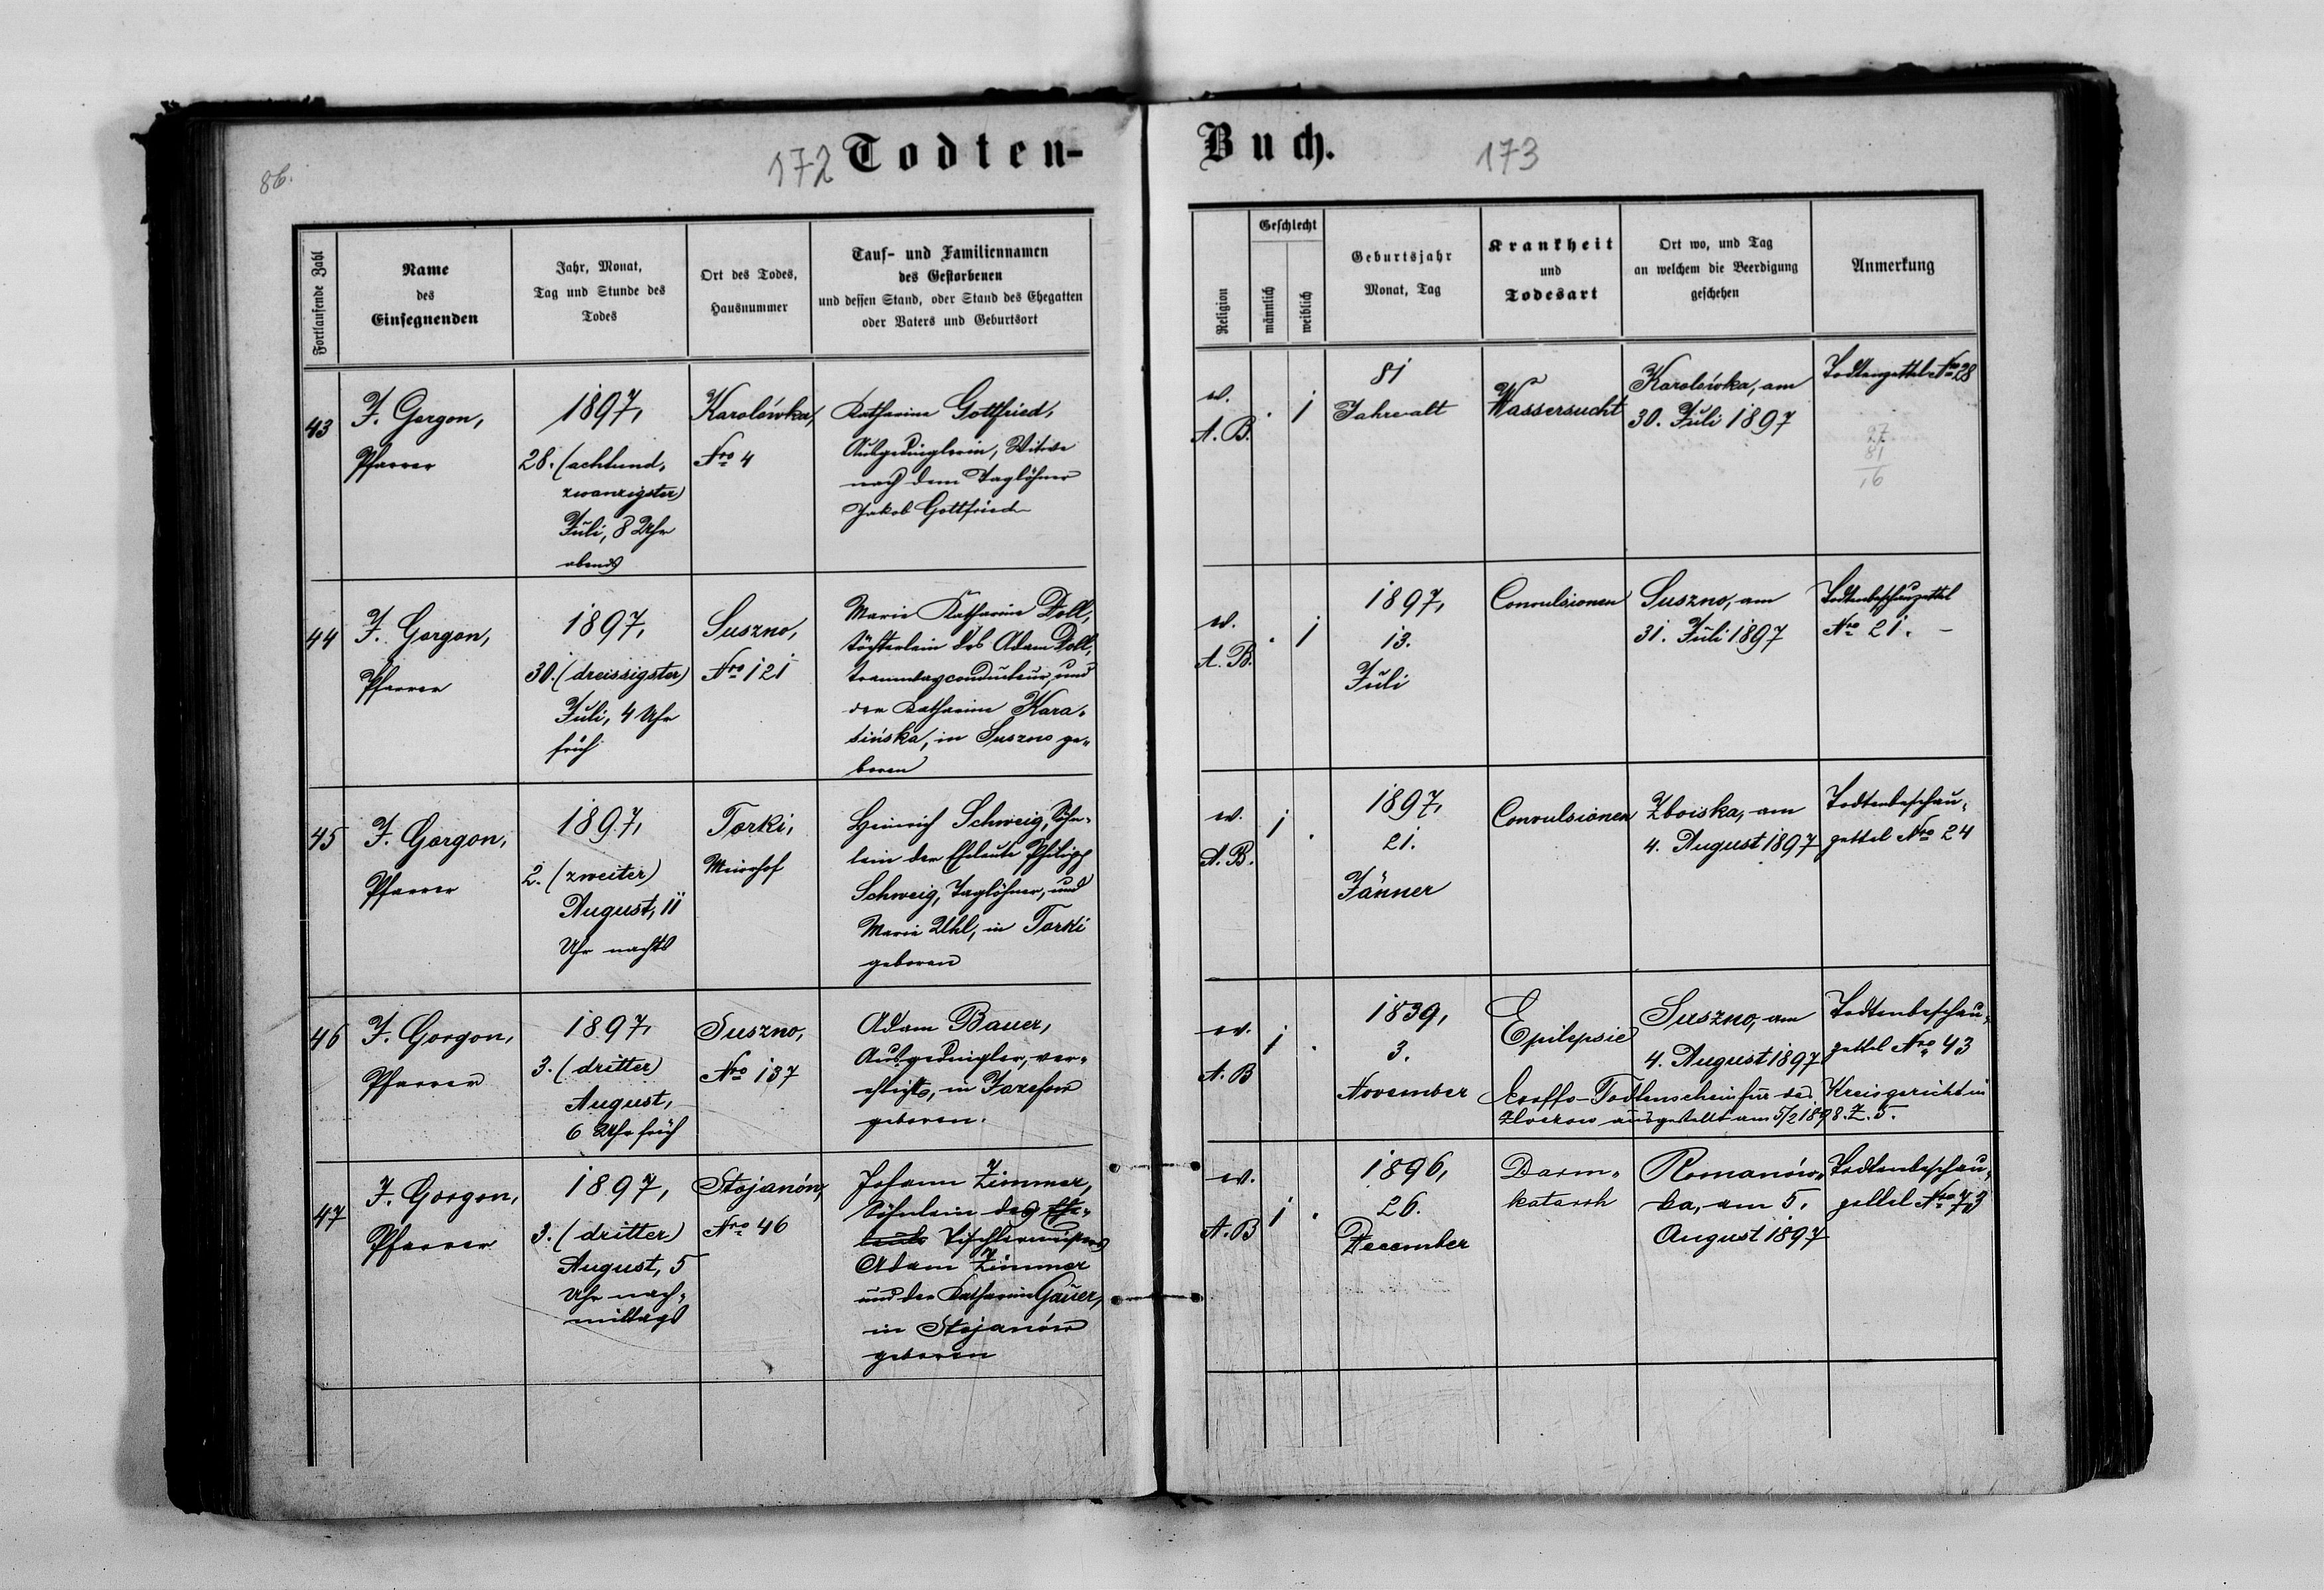 86.
172 Todten-
Buch. 173
Fortlaufende Zahl
Name
des
Einsegnenden
Jahr, Monat,
Tag und Stunde des
Todes
Ort des Todes,
Hausnummer
Tauf- und Familiennamen
des Gestorbenen
und dessen Stand, oder Stand des Ehegatten
oder Vaters und Geburtsort
Religion
Geschlecht
männlich
weiblich
Geburtsjahr
Monat, Tag
Krankheit
und
Todesart
Ort wo, und Tag
an welchem die Beerdigung
geschehen
Anmerkung
43
F. Gorgon,
Pfarrer
1897,
28. (achtund-
zwanzigster)
Juli, 8 Uhr
abends
Karolówka,
Nro 4
Katharina Gottfried,
Ausgedinglerin, Witwe
nach dem Taglöhner
Jakob Gottfried
ev.
A. B.
. 1
81
Jahre alt
Wassersucht
Karolówka, am
30. Juli 1897
Todtenzettel Nro 28
27
81
16
44
F. Gorgon,
Pfarrer
1897,
30. (dreissigster)
Juli, 4 Uhr
früh
Suszno,
Nro 121
Marie Katharina Doll,
Töchterlein des Adam Doll,
Tramwayconducteur, und
der Katharina Kara-
sińska, in Suszno ge-
boren
ev.
A. B.
. 1
1897,
13.
Juli
Convulsionen
Suszno, am
31. Juli 1897
Todtenbeschauzettel
Nro 21. -
45
F. Gorgon,
Pfarrer
1897,
2. (zweiter)
August, 11
Uhr nachts
Torki,
Meierhof
Heinrich Schweig, Söhn-
lein der Eheleute Philipp
Schweig, Taglöhner, und
Marie Uhl, in Torki
geboren
ev.
A. B.
1 .
1897,
21.
Jänner
Convulsionen
Zboiska, am
4. August 1897
Todtenbeschau-
zettel Nro 24
46
F. Gorgon,
Pfarrer
1897,
3. (dritter)
August,
6 Uhr früh
Suszno,
Nro 137
Adam Bauer,
Ausgedingler, ver-
ehelicht, in Jozefow
geboren.
ev.
A. B
1 .
1839,
3.
November
Epilepsie
Suszno, am
4. August 1897
Todtenbeschau-
zettel Nro 43
Todtenschein für das Kreisgericht in
Zloczow ausgestellt am 5/2 1898. Z. 5.
47
F. Gorgon,
Pfarrer
1897,
3. (dritter)
August, 5
Uhr nach-
mittags
Stojanów,
Nro 46
Johann Zimmer,
Söhnlein des Ehe-
leute Tischlermeisters
Adam Zimmer
und der Katharina Gauer,
in Stojanów
geboren
ev.
A. B
1 .
1896,
26.
December
Darm-
katarrh
Romanów-
ka, am 5.
August 1897
Todtenbeschau-
zettel Nro 73